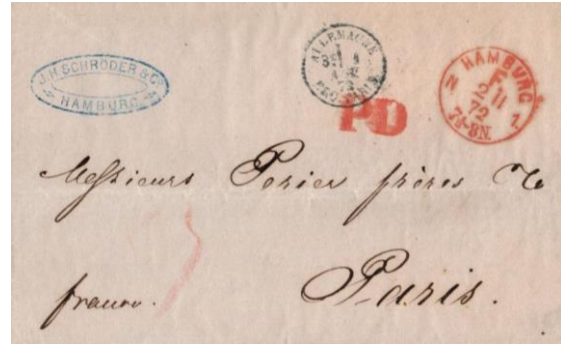 J.H. SCHRÖDER & Co
HAMBURG
ALLEMAGNE
PARIS
72
PD
HAMBURG
F
2 11
72
7½-8N.
N 1.
Messieurs Perier frères &c
franco.
Paris.